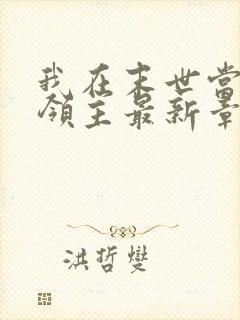 我在末世当
领主最新章
洪哲燮